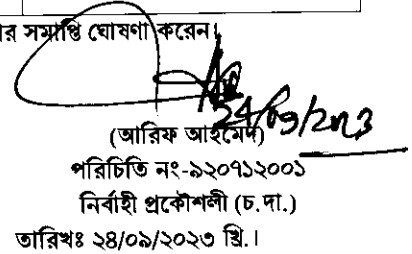 র সমাপ্তি ঘোষণা করেন।
24/09/2023
(আরিফ আহমেদ)
পরিচিতি নং-৯২০৭১২০০১
নির্বাহী প্রকৌশলী (চ.দা.)
তারিখঃ ২৪/০৯/২০২৩ খ্রি.।